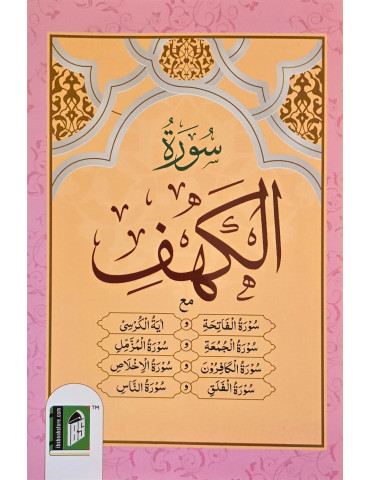 سُورَةُ
الْكَهْفِ
مع
سُورَةُ الْفَاتِحَة و اٰيَةُ الْكُرْسِىْ
سُورَةُ الْجُمُعَة و سُورَةُ الْمُزَّمِّل
سُورَةُ الْكَافِرُوْن و سُورَةُ الْاِخْلَاص
سُورَةُ الْفَلَق و سُورَةُ النَّاس
IBS
TM